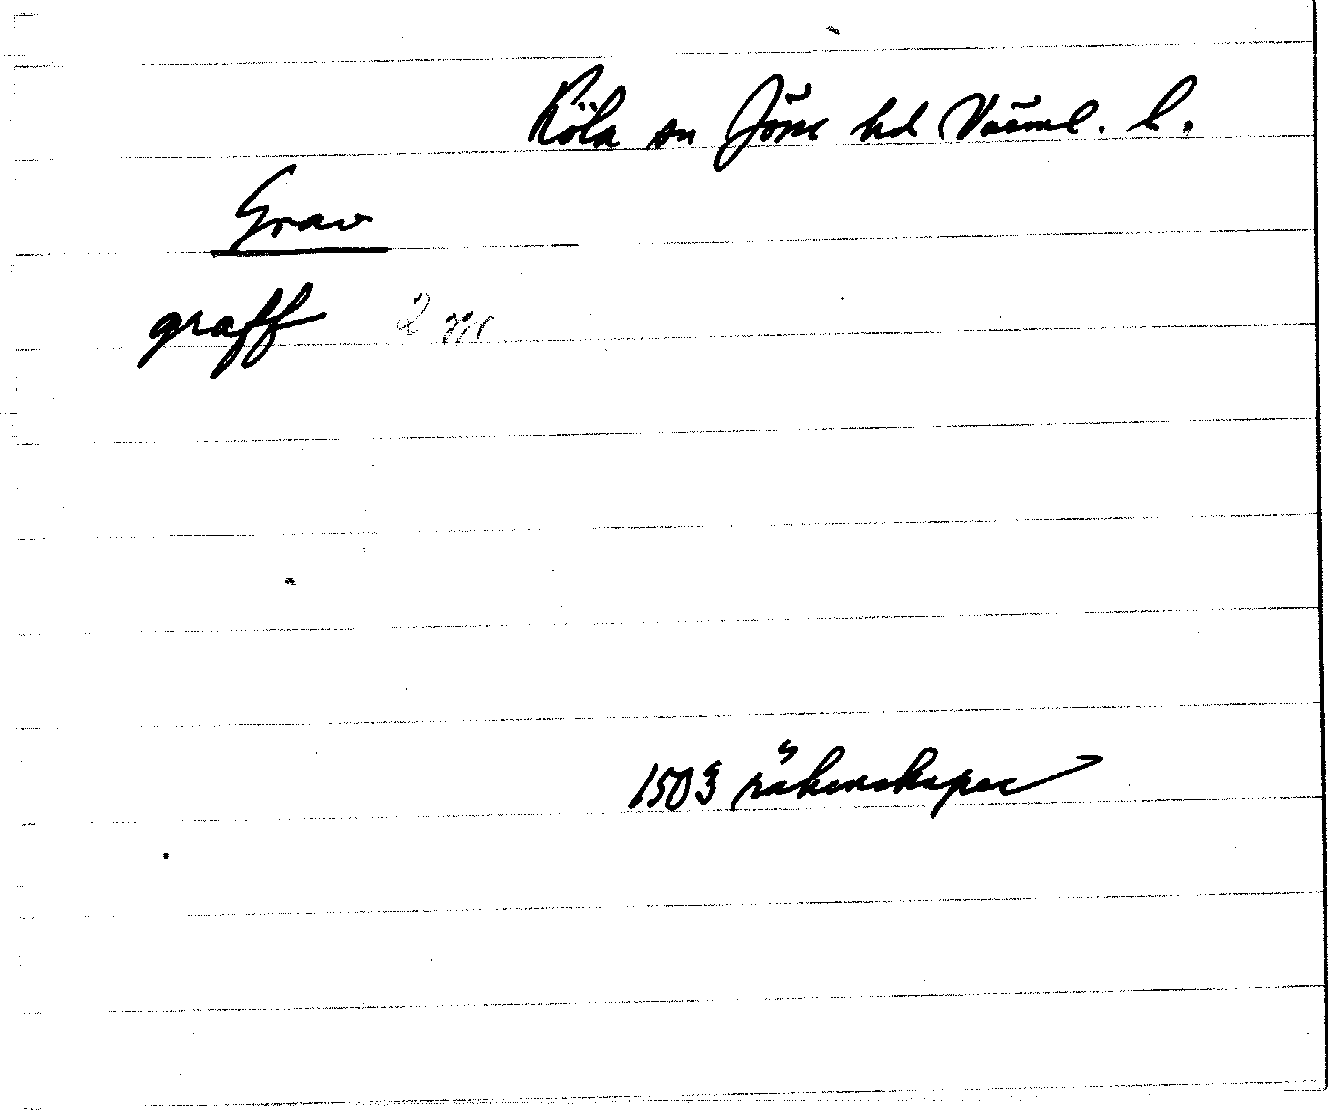 Köla sn Jösse hd Värml. l.
Grav
graff 2 m
1503 räkenskaper